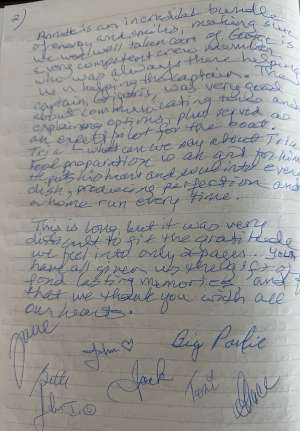 2)
is an incredible bundle
of energy and smiles, making sure
we were well taken care of. is
a very competent crew member
who was always there helping
us or helping the captain. The
captain, , was very good
about communicating times and
explaining options, plus served as
an expert pilot for the boat.
- what can we say about
Food preparation is an art for him
He puts his heart and soul into every
dish, producing perfection and
a home run every time.
This is long, but it was very
difficult to fit the gratitude
we feel into only 2 pages... You
have all given us the gift of
fond lasting memories and for
that we thank you with all
our hearts.
John ♡
Big Paulie
Jack